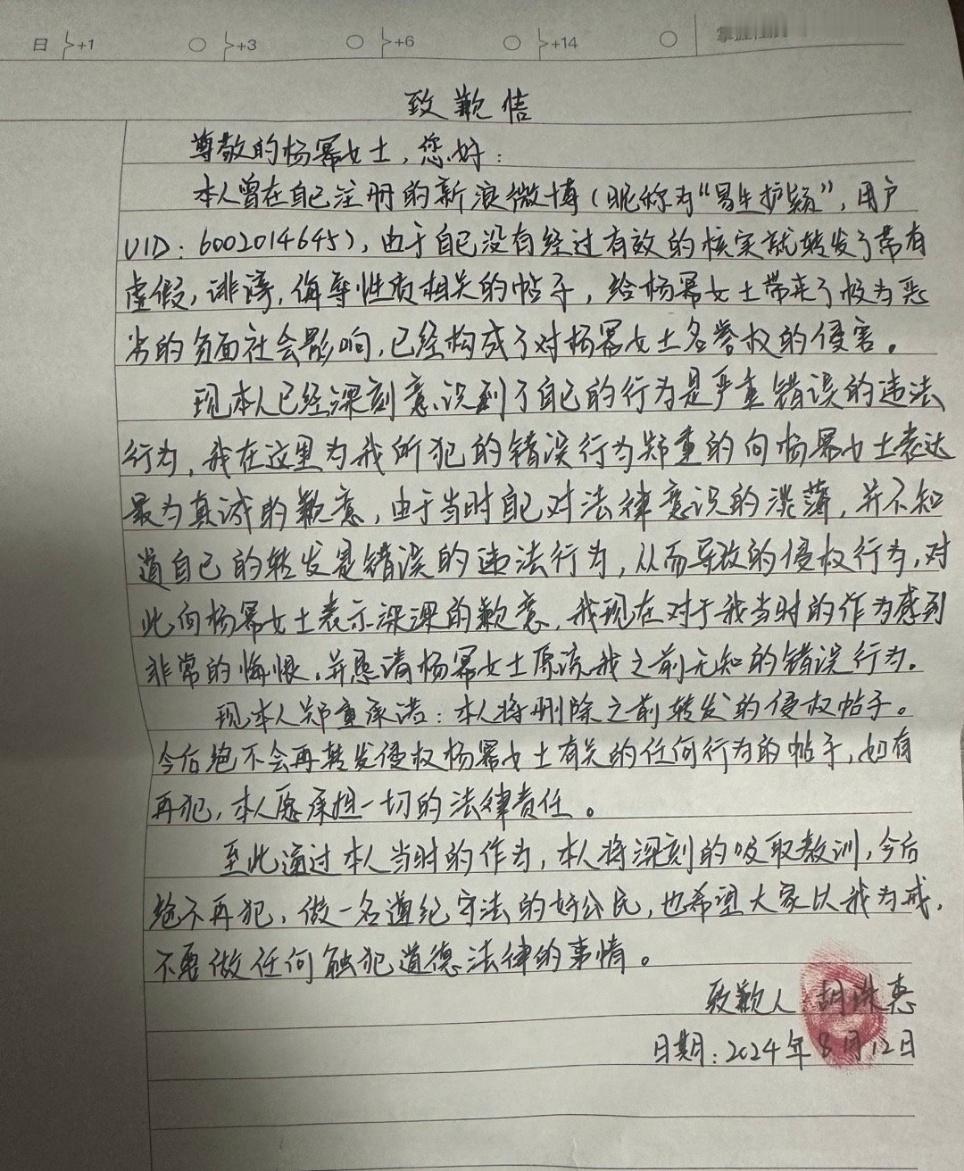 日 +1 +3 +6 +14
致歉信
尊敬的杨幂女士，您好：
本人曾在自己注册的新浪微博（昵称为“易生护颖”，用户
UID：6002014645），由于自己没有经过有效的核实就转发了带有
虚假，诽谤，侮辱性质相关的帖子，给杨幂女士带来了极为恶
劣的负面社会影响，已经构成了对杨幂女士名誉权的侵害。
现本人已经深刻意识到了自己的行为是严重错误的违法
行为，我在这里为我所犯的错误行为郑重的向杨幂女士表达
最为真诚的歉意，由于当时自己对法律意识的淡薄，并不知
道自己的转发是错误的违法行为，从而导致的侵权行为，对
此向杨幂女士表示深深的歉意，我现在对于我当时的作为感到
非常的悔恨，并恳请杨幂女士原谅我之前无知的错误行为。
现本人郑重承诺：本人将删除之前转发的侵权帖子。
今后绝不会再转发侵权杨幂女士有关的任何行为的帖子，如有
再犯，本人愿承担一切的法律责任。
至此通过本人当时的作为，本人将深刻的吸取教训，今后
绝不再犯，做一名遵纪守法的好公民，也希望大家以我为戒，
不要做任何触犯道德法律的事情。
致歉人 胡 惠
日期：2024年8月12日